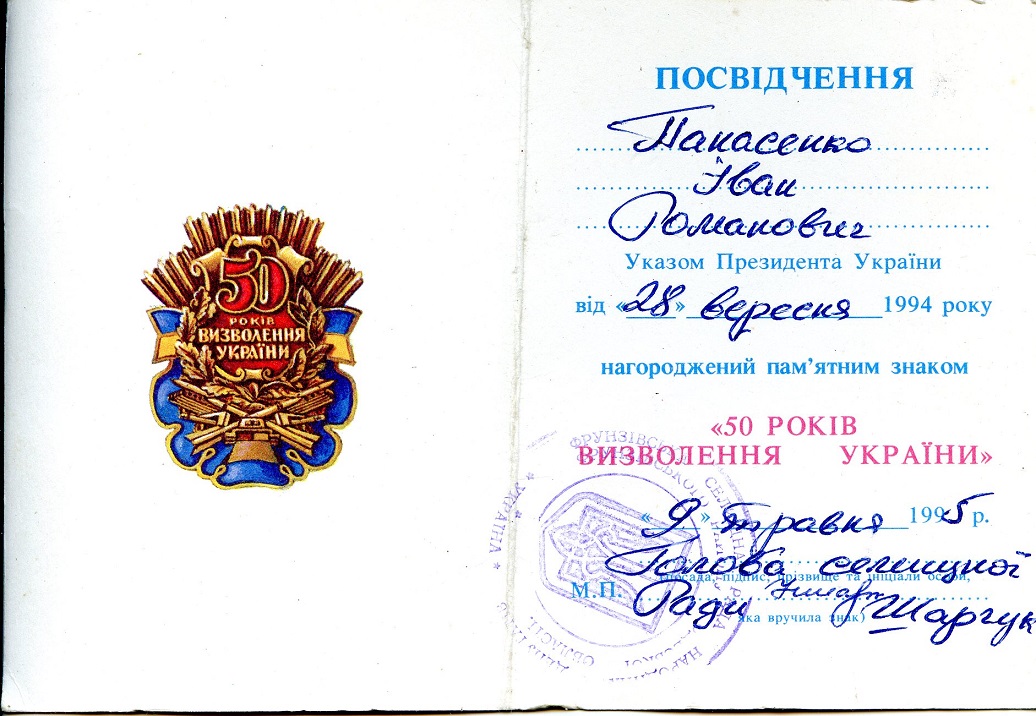 50
РОКІВ
ВИЗВОЛЕННЯ
УКРАЇНИ
ПОСВІДЧЕННЯ
Панасенко
Іван
Романович
Указом Президента України
від «28» вересня 1994 року
нагороджений пам’ятним знаком
«50 РОКІВ
ВИЗВОЛЕННЯ УКРАЇНИ»
«9» травня 1995 р.
Голова селищної
(посада, підпис, прізвище та ініціали особи,
М.П. Ради Шарчук
яка вручила знак)
* УКРАЇНА *
ФРУНЗІВСЬКА СЕЛИЩНА РАДА